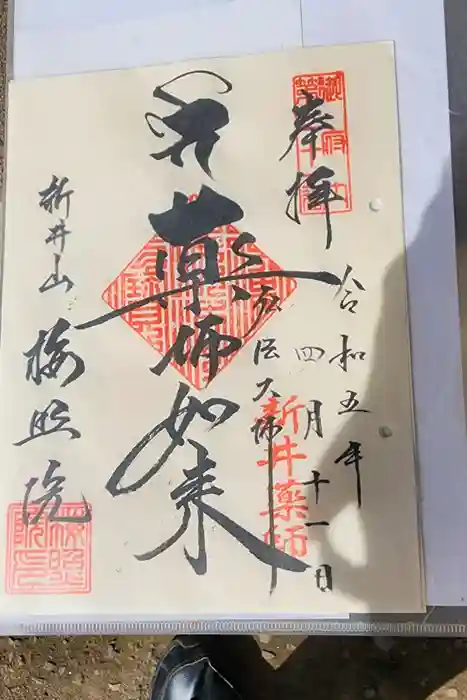 奉拝
令和五年
四月十一日
弘法大師
新井薬師
薬師如来
新井山
梅照院